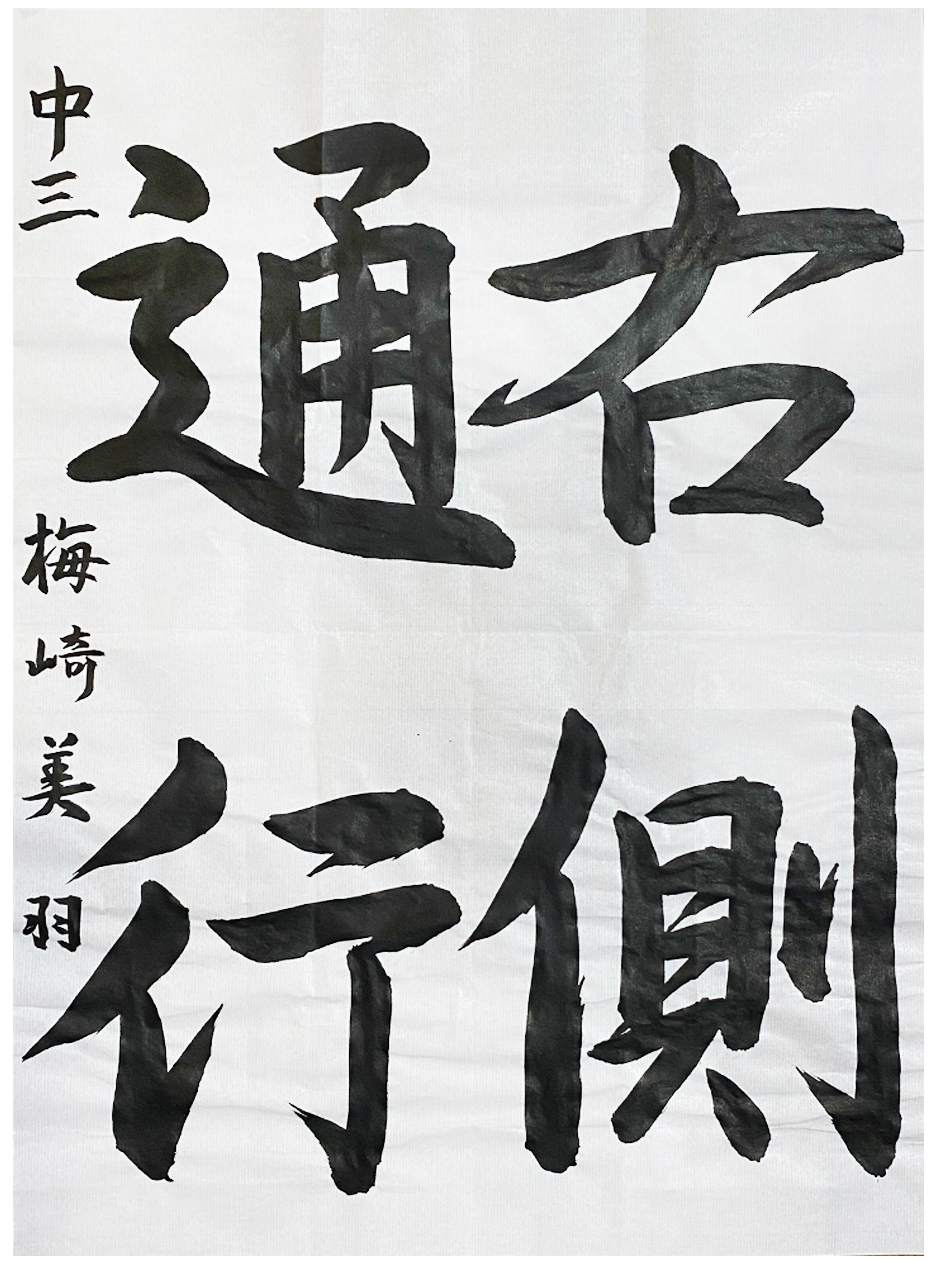 右側
通行
中三 梅崎美羽